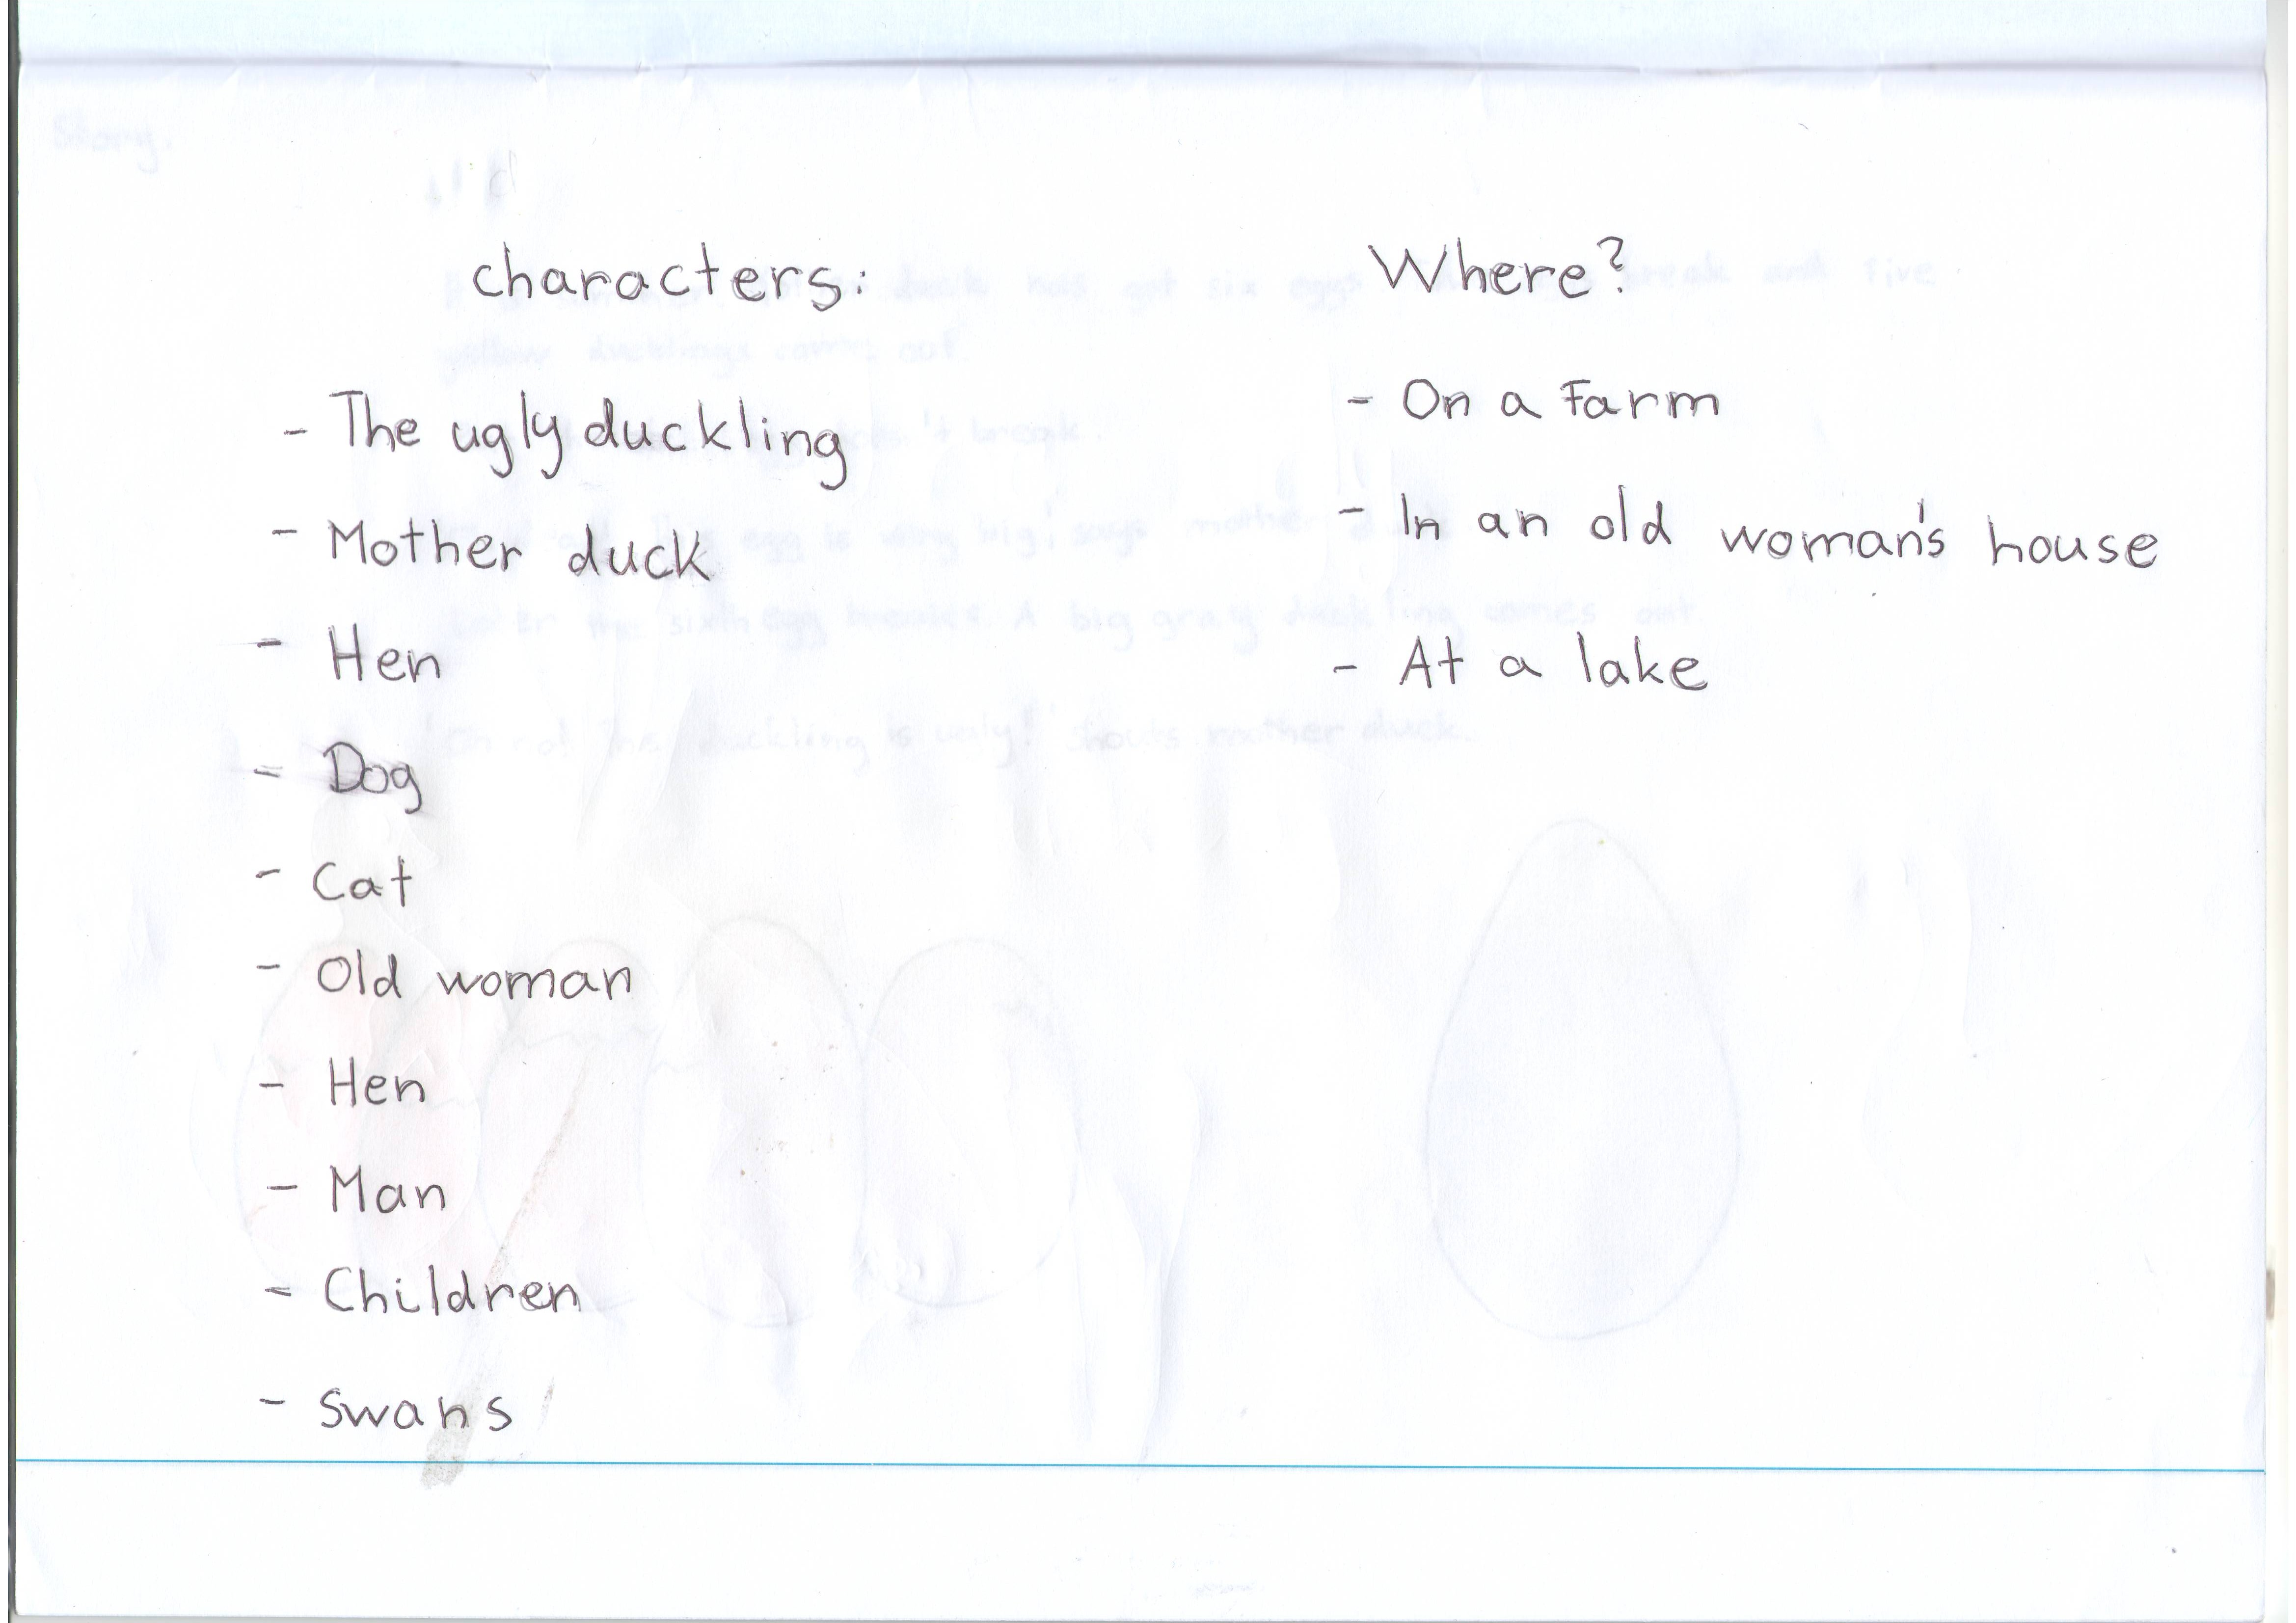 Story.
characters:
- The ugly duckling
- Mother duck
- Hen
- Dog
- Cat
- Old woman
- Hen
- Man
- Children
- Swans
Where?
- On a Farm
- In an old woman's house
- At a lake